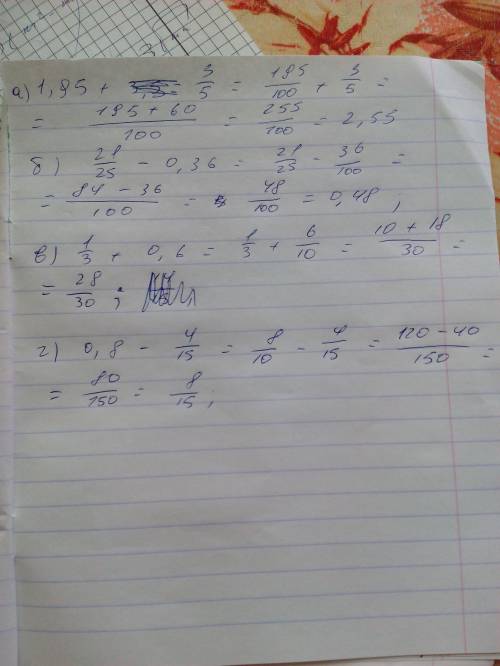 а) 1,95 + 3/5 = 195/100 + 3/5 =
= (195 + 60)/100 = 255/100 = 2,55
б) 21/25 - 0,36 = 21/25 - 36/100 =
= (84 - 36)/100 = 48/100 = 0,48 ;
в) 1/3 + 0,6 = 1/3 + 6/10 = (10 + 18)/30 =
= 28/30 ;
г) 0,8 - 4/15 = 8/10 - 4/15 = (120 - 40)/150 =
= 80/150 = 8/15 ;